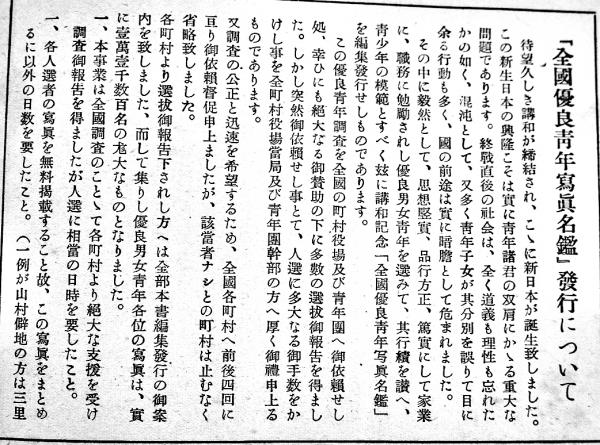 「全國優良青年寫眞名鑑」發行について
待望久しき講和が締結され、こゝに新日本が誕生致しました。
この新生日本の興隆こそは實に青年諸君の双肩にかゝる重大な
問題であります。終戰直後の社会は、全く道義も理性も忘れた
かの如く、混沌として、又多く青年子女が其分別を誤りて日に
余る行動も多く、國の前途は實に暗膽として危まれました。
その中に毅然として、思想堅實、品行方正、篤實にして家業
に、職務に勉勵されし優良男女青年を選みて、其行績を讃へ、
青少年の模範とすべく玆に講和記念「全國優良青年写眞名鑑」
を編集發行せしものであります。
この優良青年調査を全国の町村役場及び青年團へ御依頼せし
処、幸ひにも絕大なる御賛助の下に多数の選拔御報告を得まし
た。しかし突然御依頼せし事とて、人選に多大なる御手数をか
けし事を全町村役場當局及び青年團幹部の方へ厚く御禮申上る
ものであります。
又調査の公正と迅速を希望するため、全國各町村へ前後四回に
亘り御依頼督促申上ましたが、該當者ナシとの町村は止むなく
省略致しました。
各町村より選拔御報告下されし方へは全部本書編集發行の御案
内を致しました、而して集りし優良男女青年各位の寫眞は、實
に壹萬壹千数百名の尨大なものとなりました。
一、本事業は全國調査のことゝて各町村より絕大な支援を受け
調査御報告を得ましたが人選に相當の日時を要したこと。
一、各人選者の寫眞を無料掲載すること故、この寫眞をまとめ
るに以外の日数を要したこと。(一例が山村僻地の方は三里